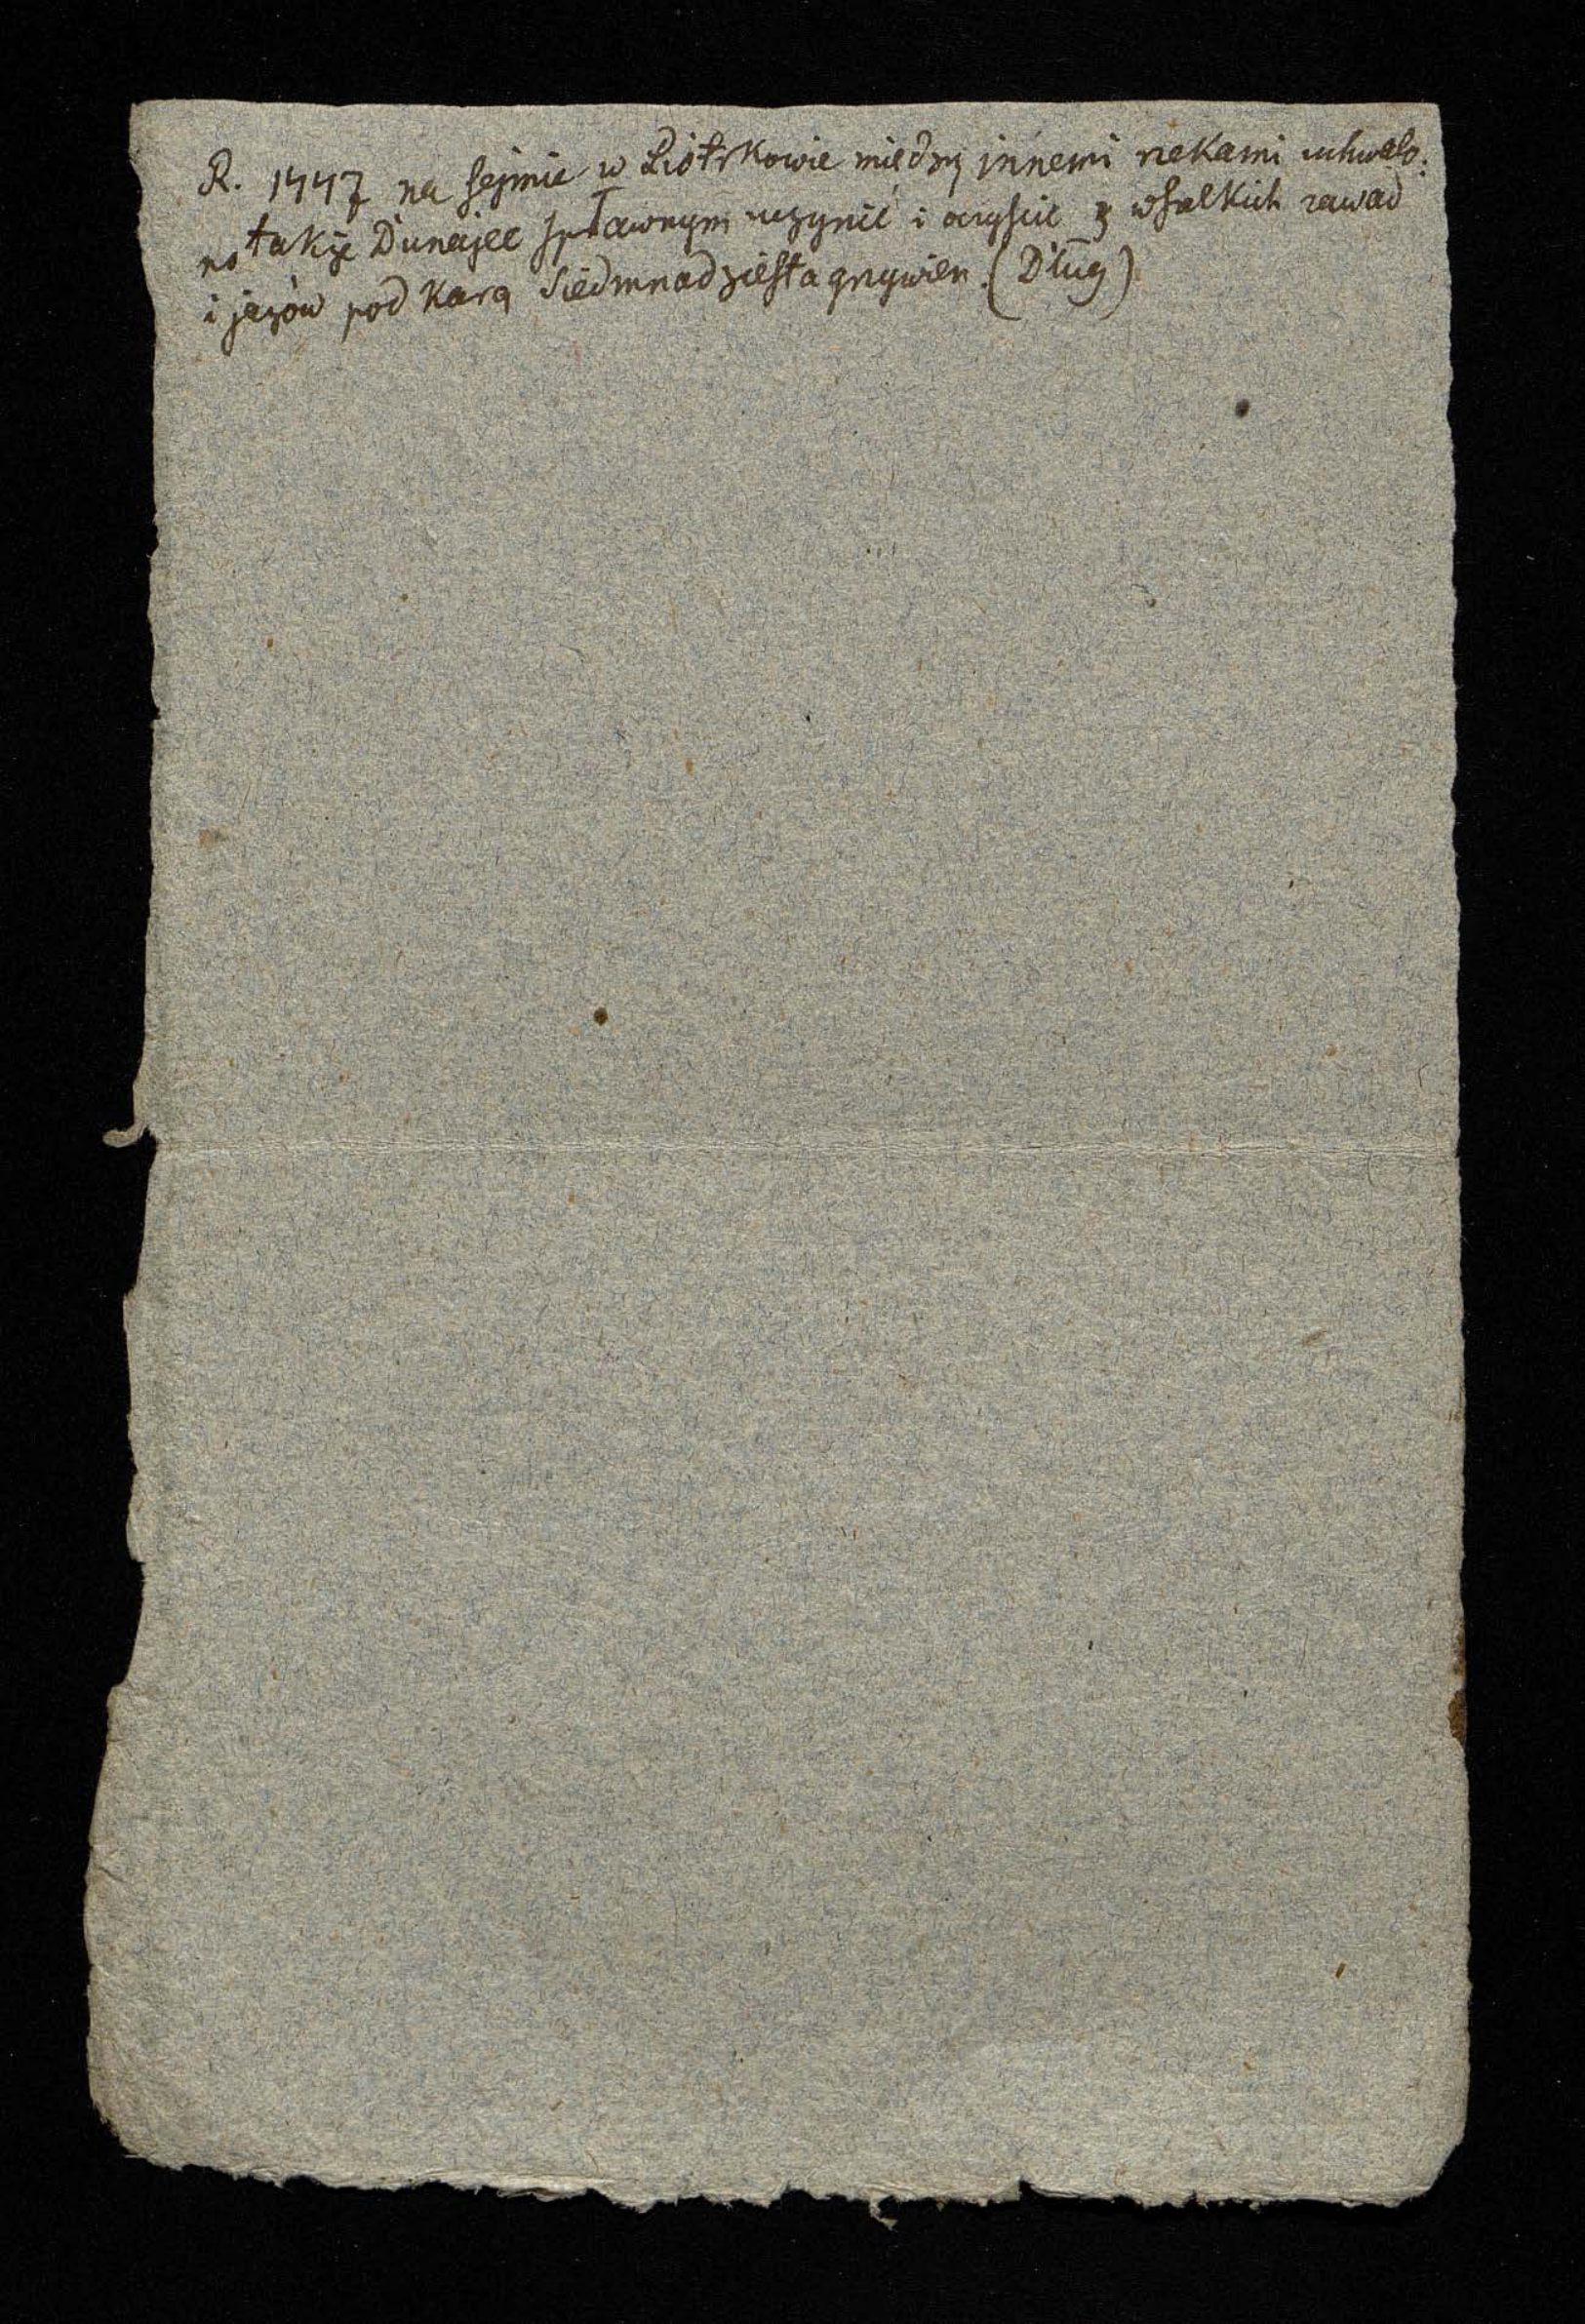 R. 1447 na sejmie w Piotrkowie między innemi rzekami uchwalo:
no także Dunajec spławnym uczynić i oczyścić z wszelkich zawad
i jazów pod karą siedmnadziesta grzywien. (Dług)